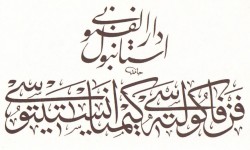 استانبول
دار الفنونی
حامد
فن فاكولته سی كيميا انستيتوسی